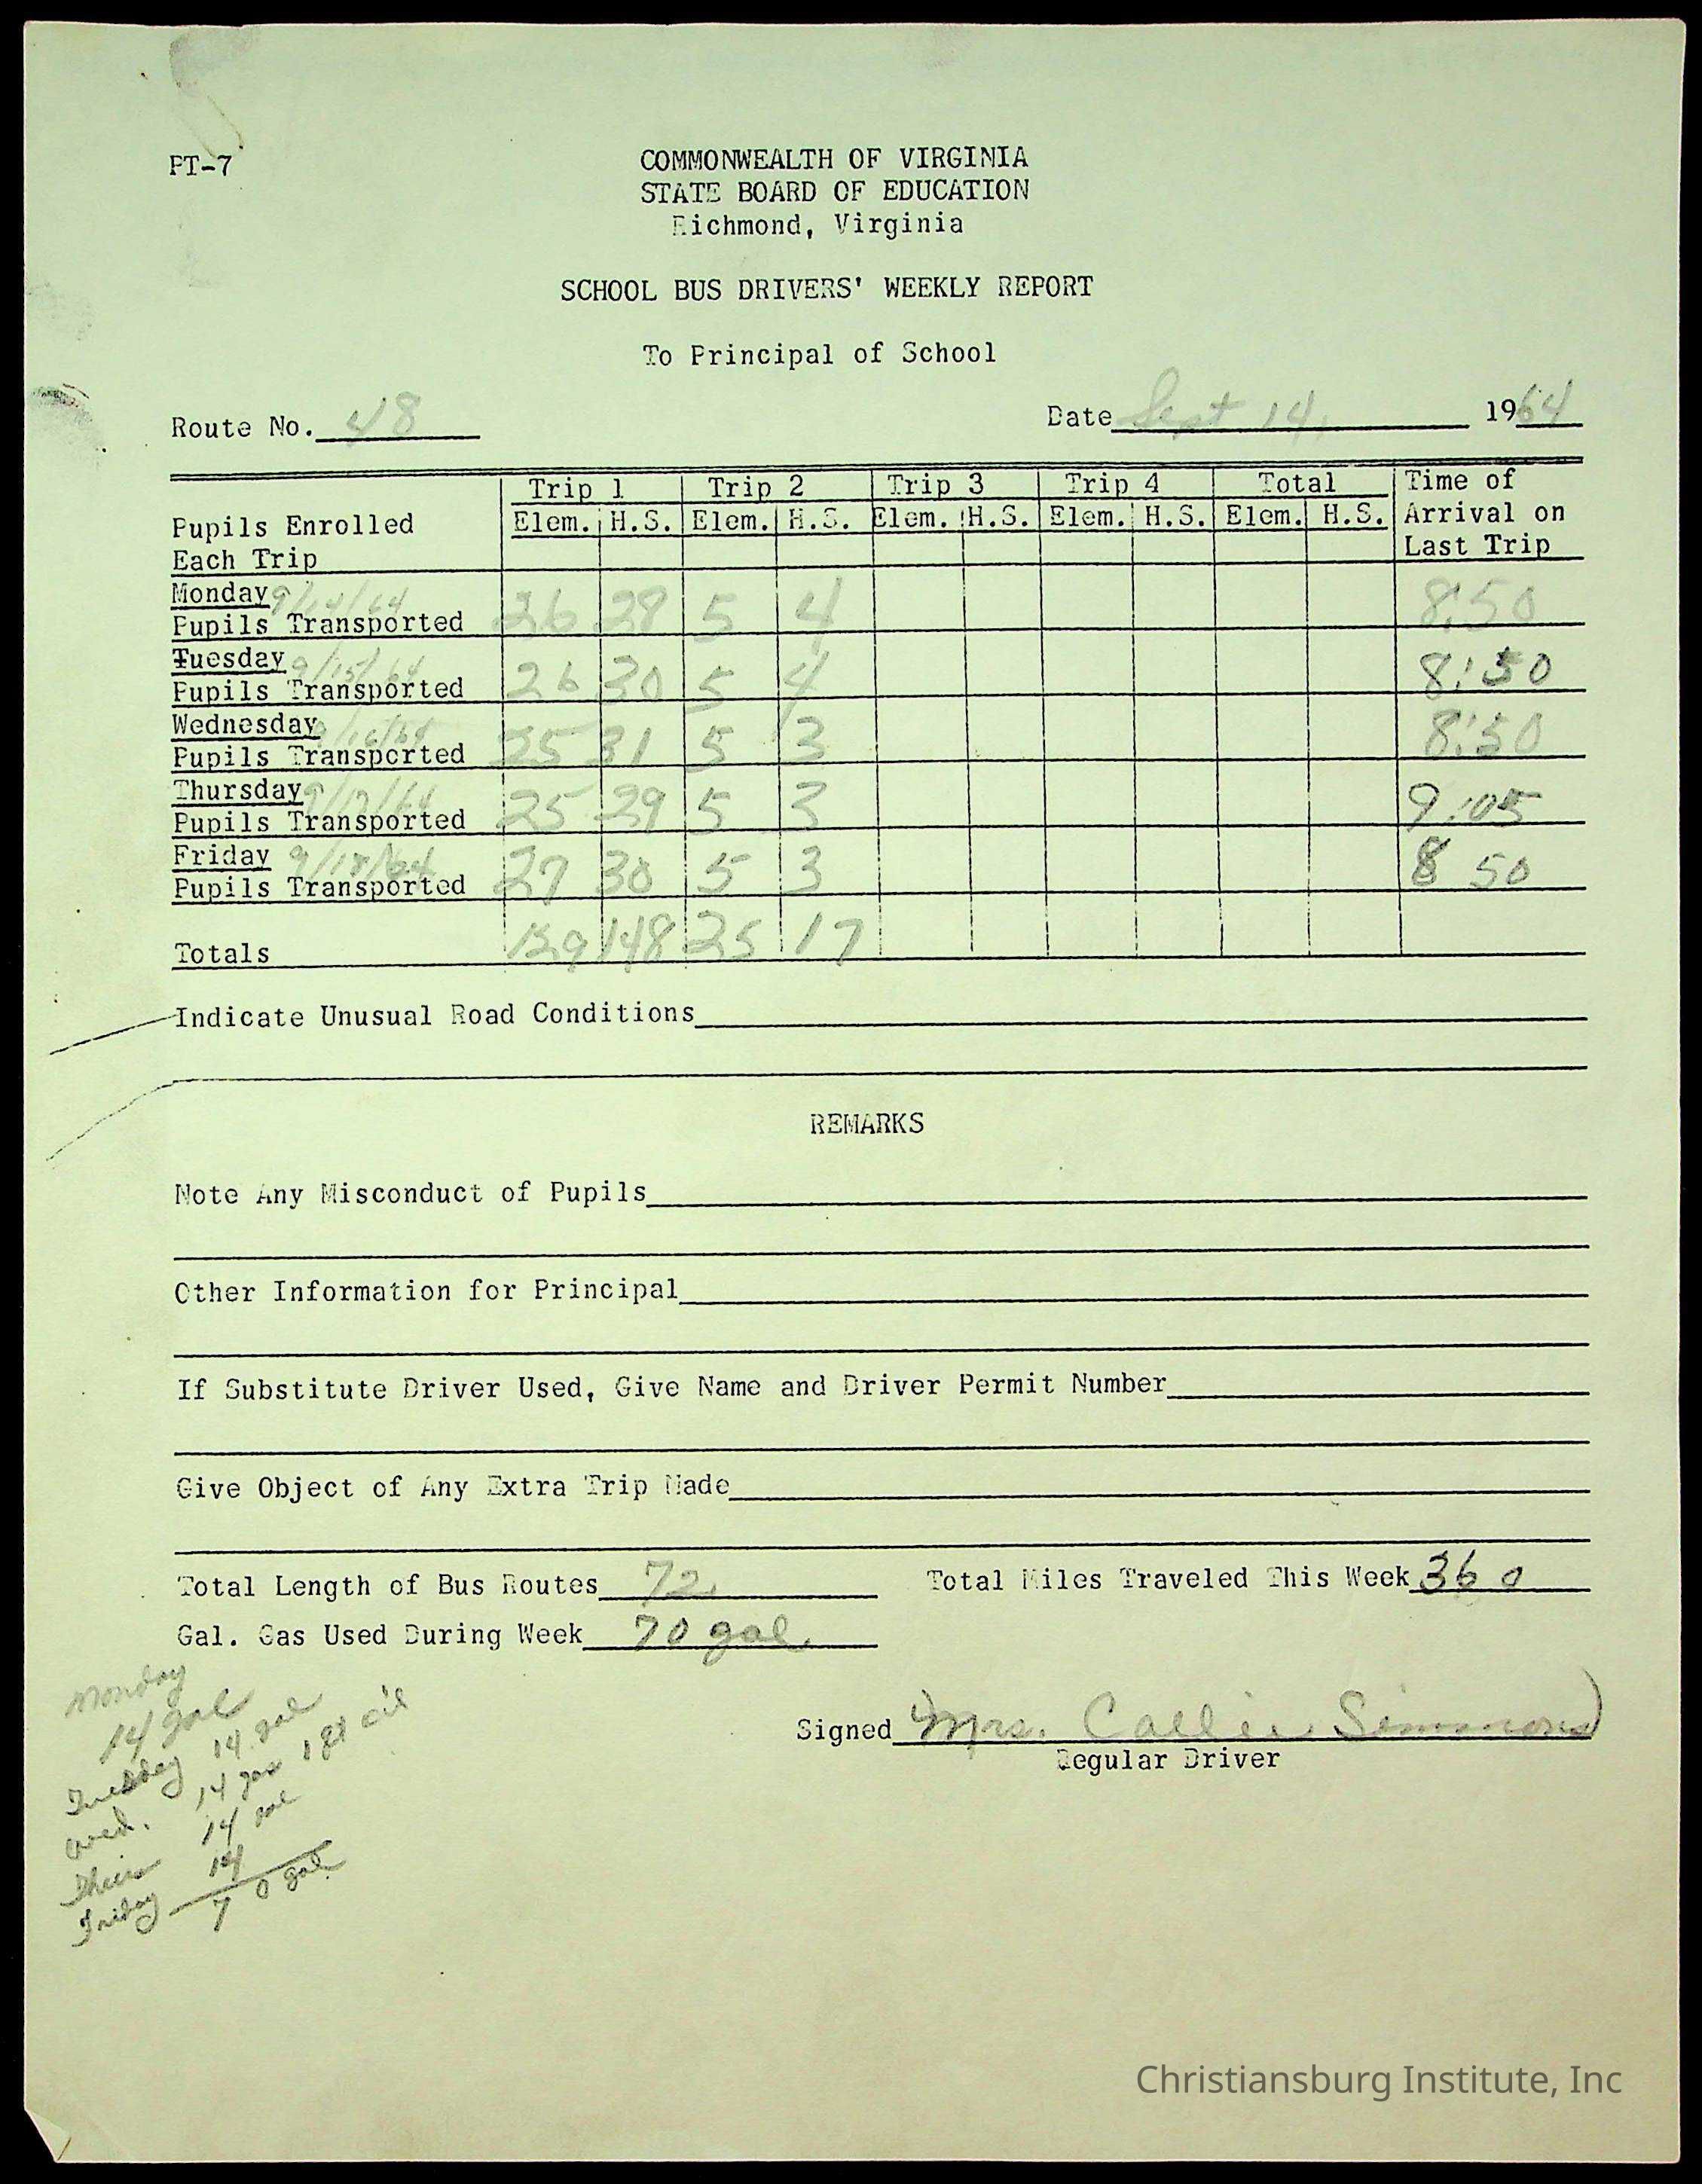 PT-7
COMMONWEALTH OF VIRGINIA
STATE BOARD OF EDUCATION
Richmond, Virginia
SCHOOL BUS DRIVERS' WEEKLY REPORT
To Principal of School
Route No. 48 Date Sept 14, 1964
Trip 1 Trip 2 Trip 3 Trip 4 Total Time of
Pupils Enrolled Elem. H.S. Elem. H.S. Elem. H.S. Elem. H.S. Elem. H.S. Arrival on
Each Trip Last Trip
Monday 9/14/64
Pupils Transported 26 28 5 4 8:50
Tuesday 9/15/64
Pupils Transported 26 30 5 4 8:50
Wednesday 9/16/64
Pupils Transported 25 31 5 3 8:50
Thursday 9/17/64
Pupils Transported 25 29 5 3 9:05
Friday 9/18/64
Pupils Transported 27 30 5 3 8 50
Totals 129 148 25 17
Indicate Unusual Road Conditions
REMARKS
Note Any Misconduct of Pupils
Other Information for Principal
If Substitute Driver Used, Give Name and Driver Permit Number
Give Object of Any Extra Trip Made
Total Length of Bus Routes 72. Total Miles Traveled This Week 360
Gal. Gas Used During Week 70 gal.
Signed Mrs. Callie Simmons
Regular Driver
Monday
14 gal
Tuesday 14 gal
Wed. 14 gas 1 qt oil
Thur 14 gal
Friday 14
70 gal.
Christiansburg Institute, Inc